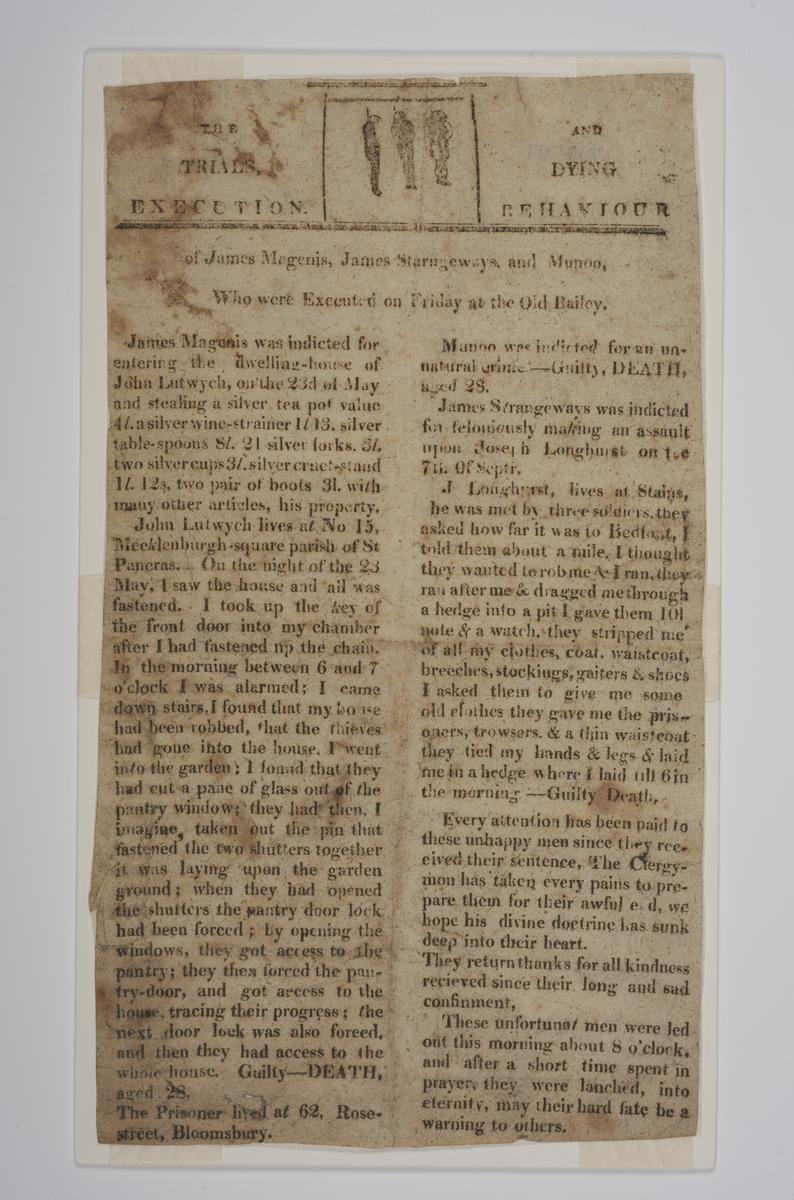 THE
TRIALS,
EXECUTION.
AND
DYING
BEHAVIOUR
of James Megenis, James Starngeways, and Munoo,
Who were Executed on Friday at the Old Bailey.
James Magenis was indicted for
entering the dwelling-house of
John Lutwych, on the 23d of May
and stealing a silver tea pot value
4l. a silver wine-strainer 1l 13. silver
table-spoons 8l. 21 silver forks. 3l.
two silver cups 3l. silver cruet-stand
1l. 12s, two pair of boots 3l. with
many other articles, his property.
John Lutwych lives at No 15,
Mecklenburgh-square parish of St
Pancras. On the night of the 23
May, I saw the house and all was
fastened. I took up the key of
the front door into my chamber
after I had fastened up the chain.
In the morning between 6 and 7
o'clock I was alarmed; I came
down stairs, I found that my house
had been robbed, that the thieves
had gone into the house. I went
into the garden; I found that they
had cut a pane of glass out of the
pantry window; they had then, I
imagine, taken out the pin that
fastened the two shutters together
it was laying upon the garden
ground; when they had opened
the shutters the pantry door lock
had been forced; by opening the
windows, they got access to the
pantry; they then forced the pan-
try-door, and got access to the
house, tracing their progress; the
next door lock was also foreed,
and then they had access to the
whole house. Guilty—DEATH,
aged 28.
The Prisoner lived at 62, Rose-
street, Bloomsbury.
Munoo was indicted for an un-
natural crime.—Guilty, DEATH,
aged 28.
James Strangeways was indicted
for feloniously making an assault
upon Joseph Longhurst on the
7th. Of Septr.
J Longhurst, lives at Stains,
he was met by three soldiers, they
asked how far it was to Bedfont, I
told them about a mile, I thought
they wanted to rob me & I ran, they
ran after me & dragged me through
a hedge into a pit I gave them 10l
note & a watch, they stripped me
of all my clothes, coat, waistcoat,
breeches, stockings, gaiters & shoes
I asked them to give me some
old clothes they gave me the pris-
oners, trowsers. & a thin waistcoat
they tied my hands & legs & laid
me in a hedge where I laid till 6 in
the morning —Guilty Death,
Every attention has been paid to
these unhappy men since they rec-
eived their sentence, The Clergy-
mon has taken every pains to pre-
pare them for their awful e d, we
hope his divine doctrine has sunk
deep into their heart.
They return thanks for all kindness
recieved since their long and sad
confinment,
These unfortunat men were led
out this morning about 8 o'clock,
and after a short time spent in
prayer, they were lanched, into
eternity, may their hard fate be a
warning to others.